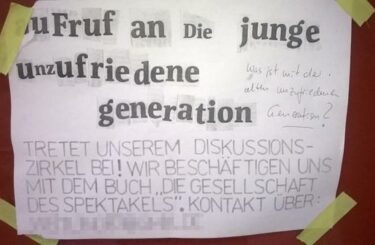 auFruf an Die junge
unzufriedene
generation
was ist mit der
alten unzufriedenen
Generation?
TRETET UNSEREM DISKUSSIONS-
ZIRKEL BEI! WIR BESCHÄFTIGEN UNS
MIT DEM BUCH „DIE GESELLSCHAFT
DES SPEKTAKELS". KONTAKT ÜBER: